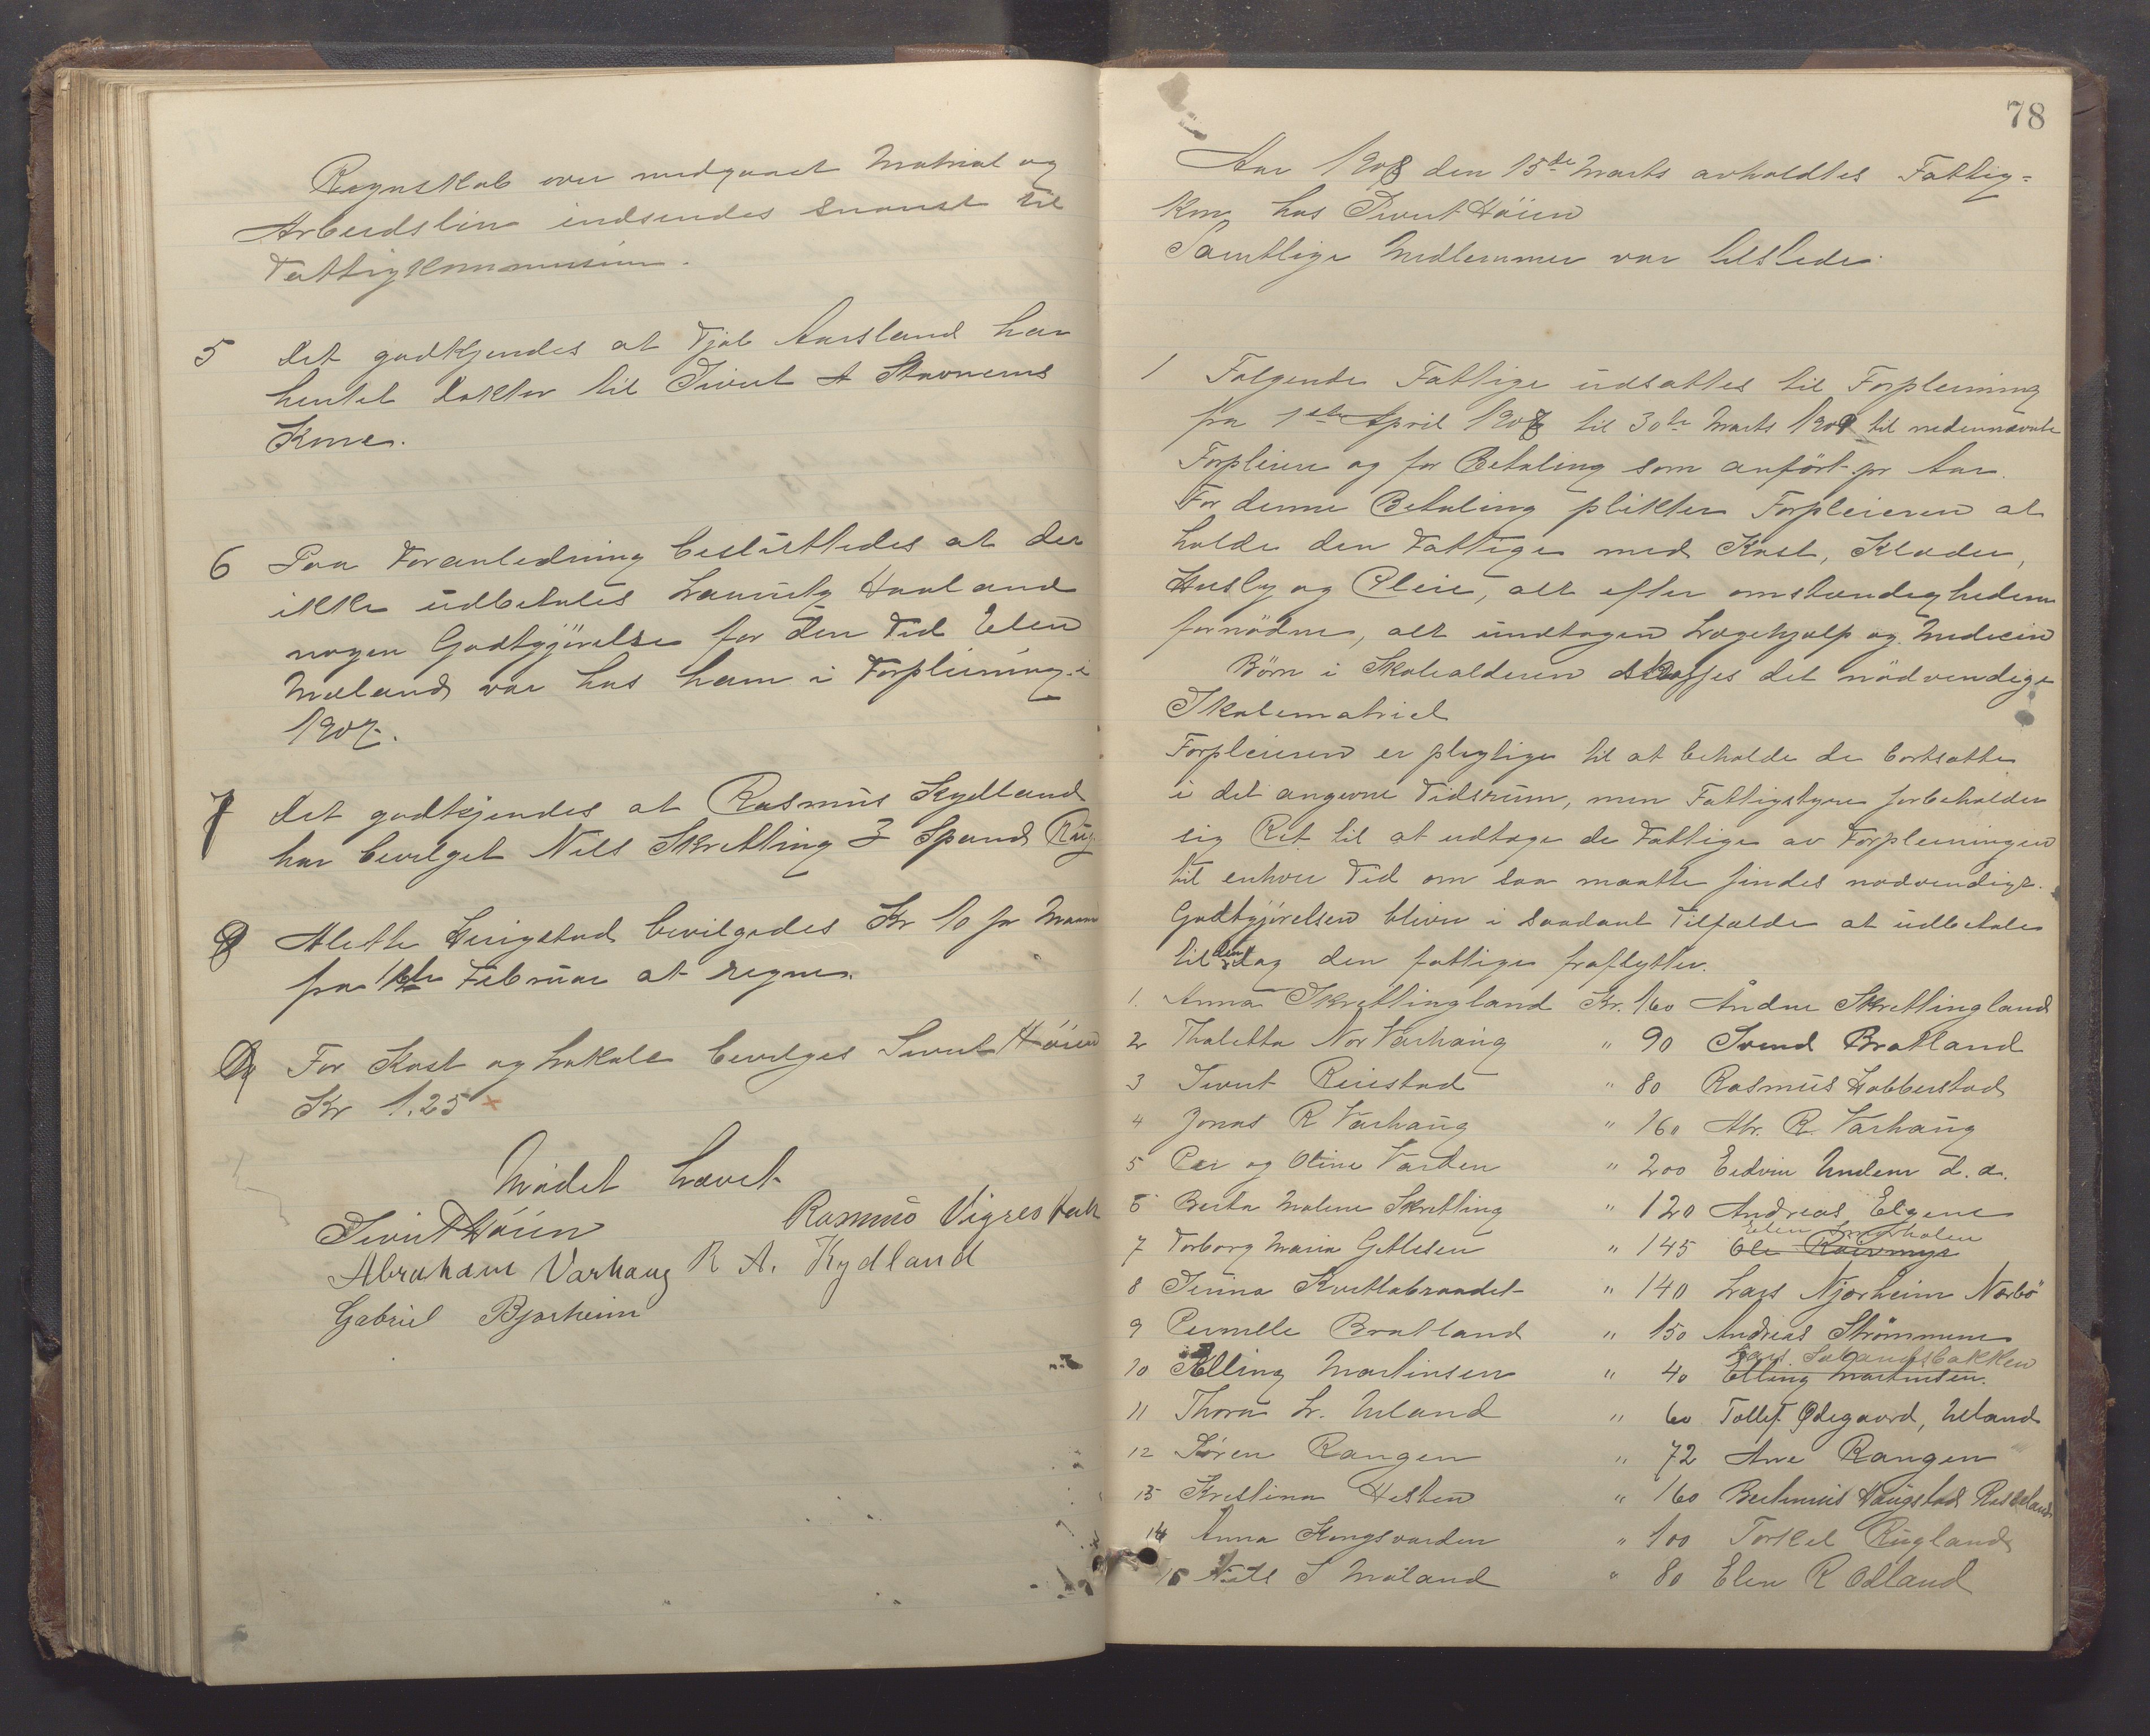 Regnskab over medgaaet Matrial og
Arbeidslön indsendes snarest til
Fattigkommissionen.
5 Det godkjendes at Tjöl Aarsland har
hentet Doktor til Sivert A Stavnems
Kone.
6 Paa Foranledning besluttedes at der
ikke udbetales Lauritz Haaland
nogen Godtgjörelse for den Tid Elen
Mæland var hos ham i Forpleining i
1907.
7 Det godkjendes at Rasmus Kydland
har bevilget Nils Skretting 3 Spand Rug.
8 Alette Herigstad bevilgedes Kr 10 pr Maan
fra 1ste Februar at regne.
9 For Kost og Lokale bevilges Sivert Höien
Kr 1.25
Mödet hævet
Sivert Höien Rasmus Vigrestad
Abraham Varhaug R A. Kydland
Gabriel Bjorheim
78
Aar 1908 den 15de Marts avholdtes Fattig=
kom hos Sivert Höien
Samtlige Medlemmer var tilstede.
1 Følgende Fattige udsattes til Forpleining
fra 1ste April 1908 til 30te Marts 1909 til nedennævnte
Forpleiere og for Betaling som anfört pr Aar.
For denne Betaling plikter Forpleieren at
holde den Fattige med Kost, Klæder,
Husly og Pleie, alt efter omstændighederne
fornödne, alt undtagen Lægehjælp og Medicin
Börn i Skolealderen skaffes det nödvendige
Skolematriel
Forpleieren er plegtige til at beholde de bortsatte
i det angivne Tidsrum, men Fattigstyre forbeholder
sig Ret til at udtage de Fattige av Forpleiningen
til enhver Tid om saa maatte findes nødvendigt.
Godtgjörelsen bliver i saadant Tilfælde at udbetale
til den dag den fattige fraflytter.
1. Anna Skrettingland Kr. 160 Ådne Skrettingland
2 Thaletta Nor Varhaug " 90 Svend Bratland
3 Sivert Reiestad " 80 Rasmus Hobberstad
4 Jonas R Varhaug " 160 Abr. R. Varhaug
5 Per og Oline Varden " 200 Eedvin Undem d. æ.
6 Berta Malene Skretting " 120 Andreas Elgene
7 Torborg Maria Gitlesen " 145 Ole Elen
8 Sinna Kvitlabraadet " 140 Lars Njærheim Nærbö
9 Pernelle Bratland " 150 Andreas Strömmene
Lars Salandsbakken
10 Elling Martinsen " 40 Elling Martinsen.
11 Thora L. Ueland " 60 Tollef Ødegaard, Ueland
12 Sören Rangen " 72 Ane Rangen
13 Kristina Hesten " 160 Haugstad
14 Anna Kongsvarden " 100 Torkel Rugland
15 Nils S Mæland " 80 Elen R Odland